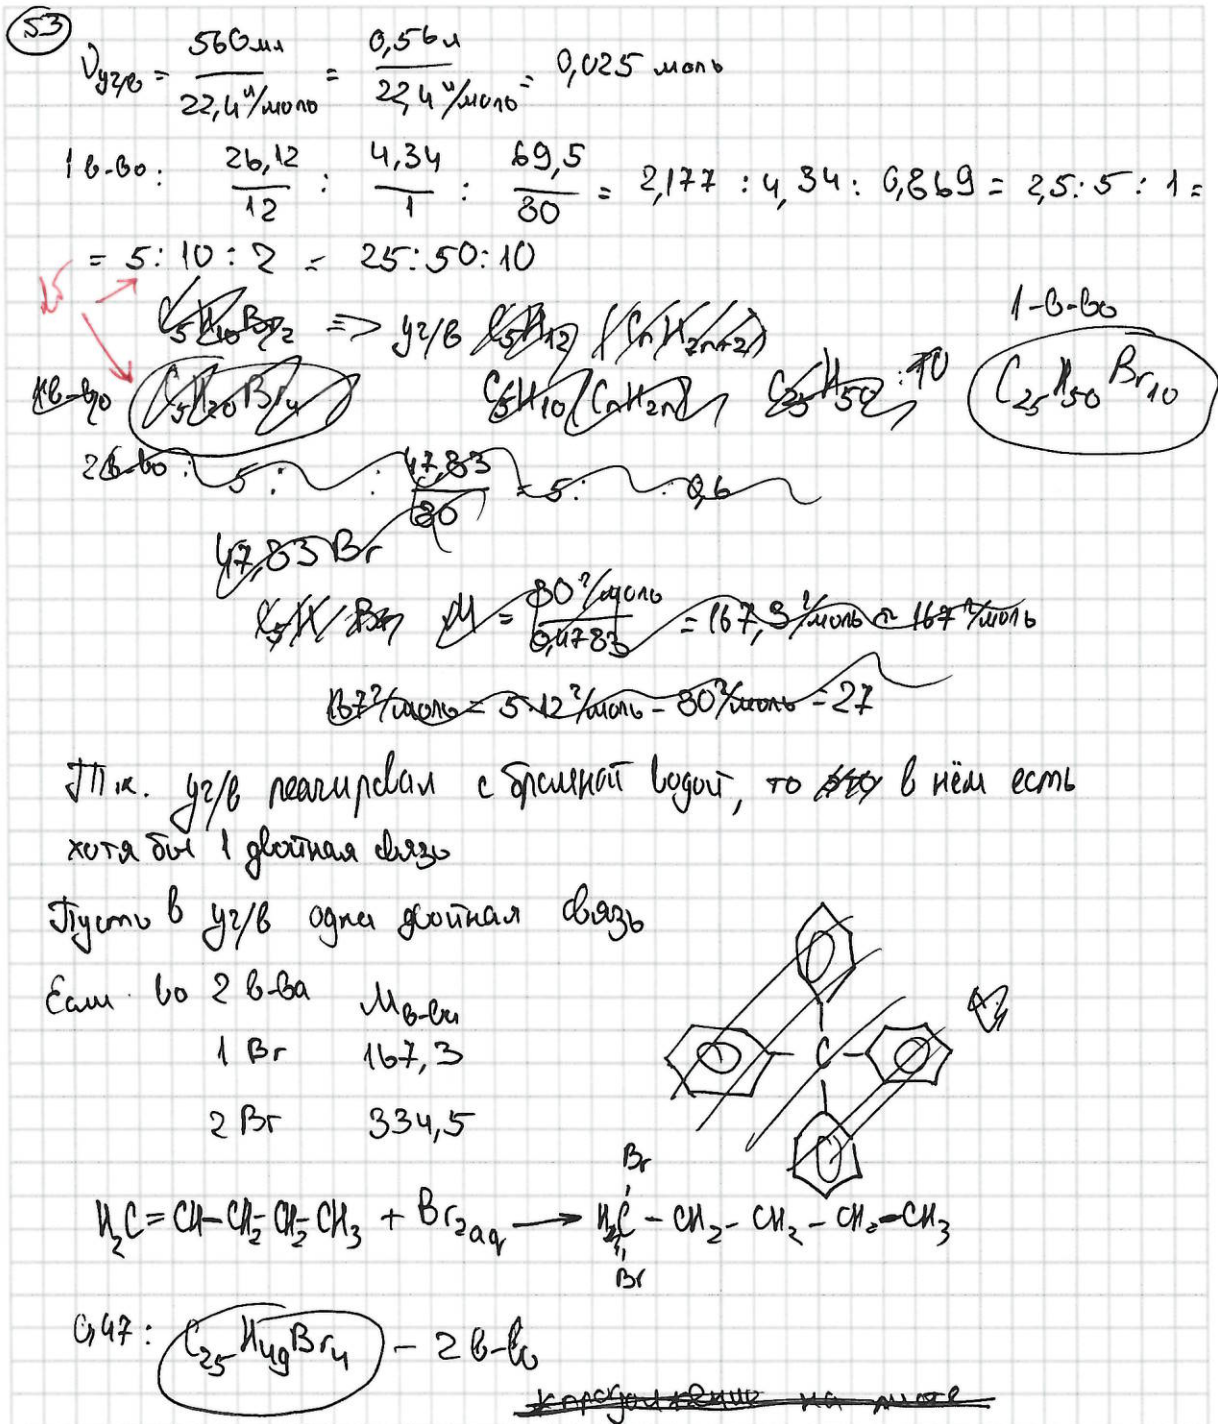 №3
νуг/в = 560 мл / 22,4 л/моль = 0,56 л / 22,4 л/моль = 0,025 моль
1 в-во: 26,12/12 : 4,34/1 : 69,5/80 = 2,177 : 4,34 : 0,869 = 2,5 : 5 : 1 =
= 5 : 10 : 2 = 25 : 50 : 10
C5H10Br2 => уг/в C5H12 (CnH2n+2) 1-в-во
C5H20Br4 C5H10 (CnH2n) C25H50 : 10 C25H50Br10
2 в-во : 5 : : 47,83/80 = 5 : : 0,6
47,83 Br
M = 80 г/моль / 0,4783 = 167,3 г/моль ≈ 167 г/моль
167 г/моль = 5·12 г/моль - 80 г/моль = 27
Т.к. уг/в реагировал с бромной водой, то в нём есть
хотя бы 1 двойная связь
Пусть в уг/в одна двойная связь
Если во 2 в-ва Mв-ва
1 Br 167,3
2 Br 334,5
C
Br
H2C=CH-CH2-CH2-CH3 + Br2 aq → H2C - CH2 - CH2 - CH2 - CH3
Br
0,47: C25H49Br4 - 2 в-во